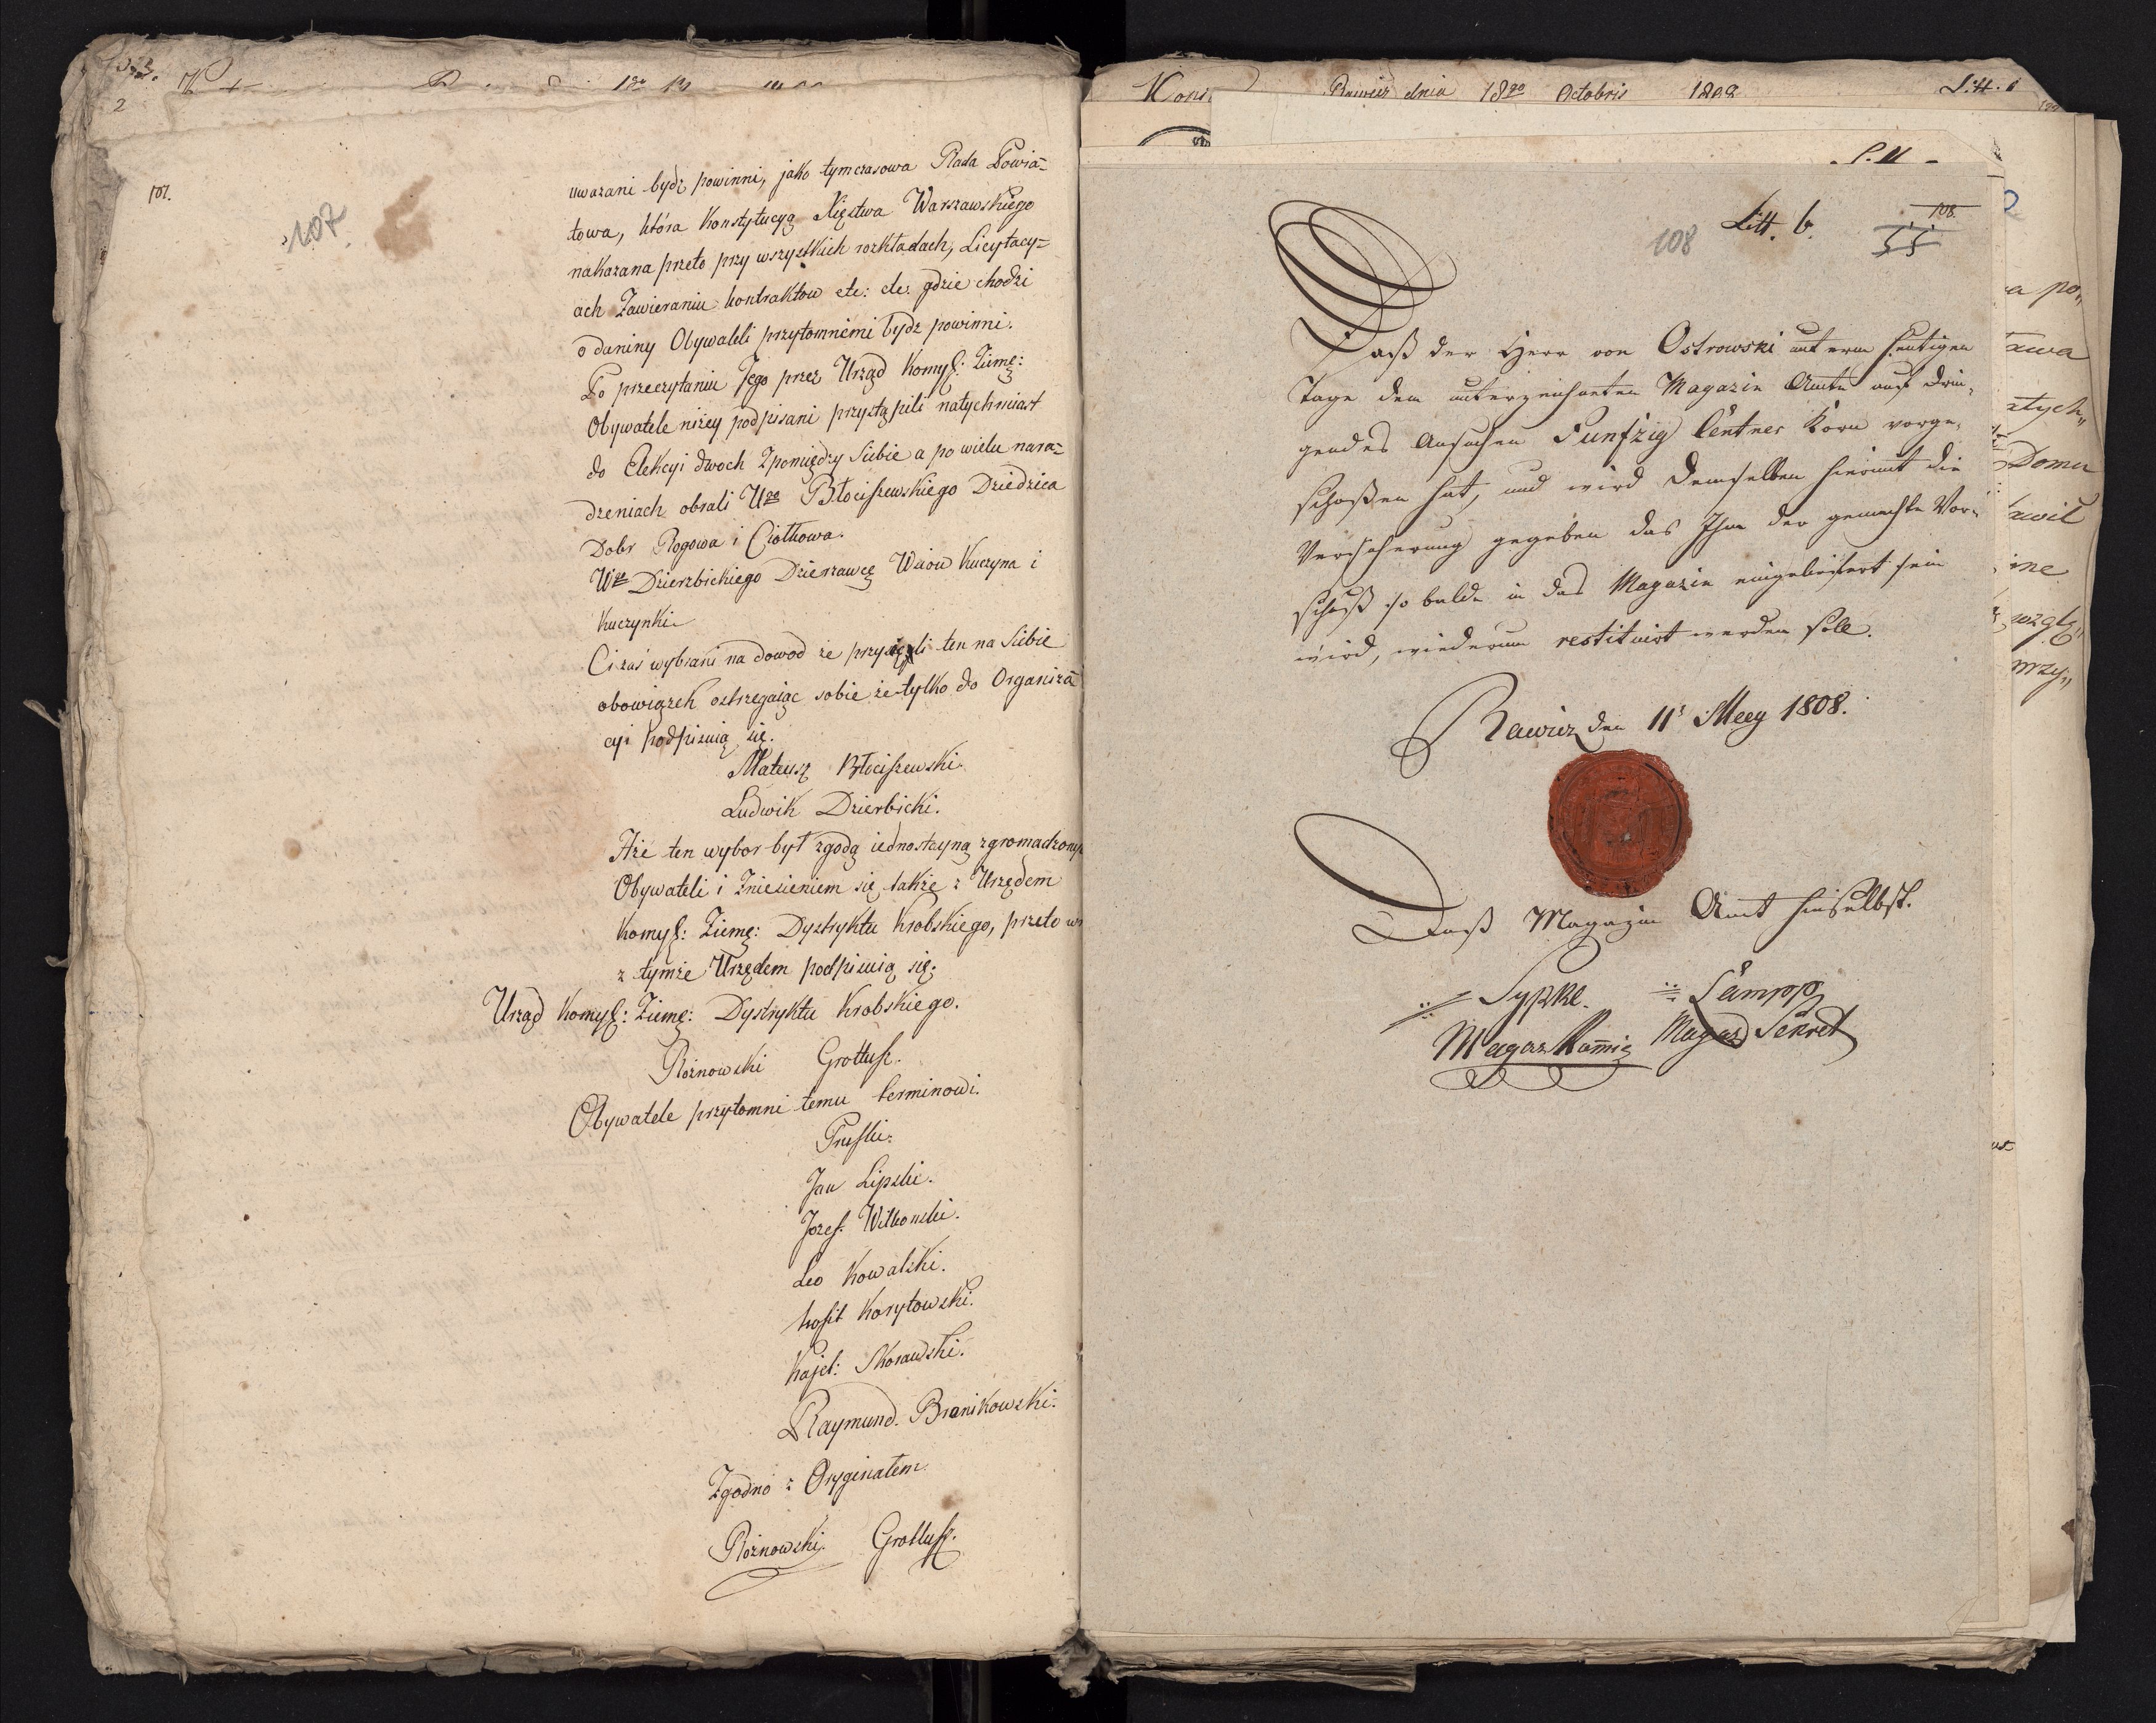 2
107.
107
uwazani bydź powinni, jako tymczasowa Rada Powia-
towa, która Konstytucyą Xięstwa Warszawskiego
nakazana przeto przy wszystkich rozkładach, Licytacy-
ach Zawieraniu kontraktow etc: etc: gdzie chodzi
o daniny Obywateli przytomnemi bydz powinni.
Po przeczytaniu Jego przez Urząd Komyſ: Ziemſ:
Obywatele niżey podpisani przystąpili natychmiast
do Elekcyi dwoch Zpomiędzy Siebie a po wielu nara-
dzeniach obrali Ugo Błociſzewskiego Dziedzica
Dobr Rogowa i Ciołkowa.
Wgo Dzierzbickiego Dzierzawcę Wsiow Kuczyna i
Kuczynki
Ci zaś wybrani na dowod że przyięli ten na Siebie
obowiązek ostrzegaiąc sobie że tylko do Organiza-
cyi podpisuią się.
Mateusz Błociſzewski.
Ludwik Dzierbicki.
Aże ten wybor był zgodą iednostayną zgromadzony
Obywateli i Zniesieniem się także z Urzędem
Komyſ: Ziemſ: Dystryktu Krobskiego, przeto
z tymże Urzędem podpisuią się.
Urząd Komyſ: Ziemſ: Dystryktu Krobskiego.
Rożnowski Grottuſ.
Obywatele przytomni temu terminowi.
Pruſki.
Jan Lipski.
Jozef Wilkonski.
Leo Kowalski.
Korytowski.
Kajet: Skorawski.
Raymund. Bronikowski.
Zgodno z Oryginałem.
Rożnowski. Grottuſ.
Rawicz dnia 18go Octobris 1808
Litt.
108
Litt. b.
108.
55
Daß der Herr von Ostrowski unterm heutigen
Tage dem unterzeichneten Magazin Amte auf drin-
gendes Ansuchen Funfzig Centner Korn vorge-
schoßen hat, und wird Demselben hiermit die
Versicherung gegeben das Ihm der gemachte Vor-
schuß so balde in das Magazin eingeliefert sein
wird, wiederum restituirt werden soll.
Rawicz den 11t Mey 1808.
Daß Magazin Amt hieselbst.
Sypke. Lampp
Magaz Secret
a po„
Domu
ine